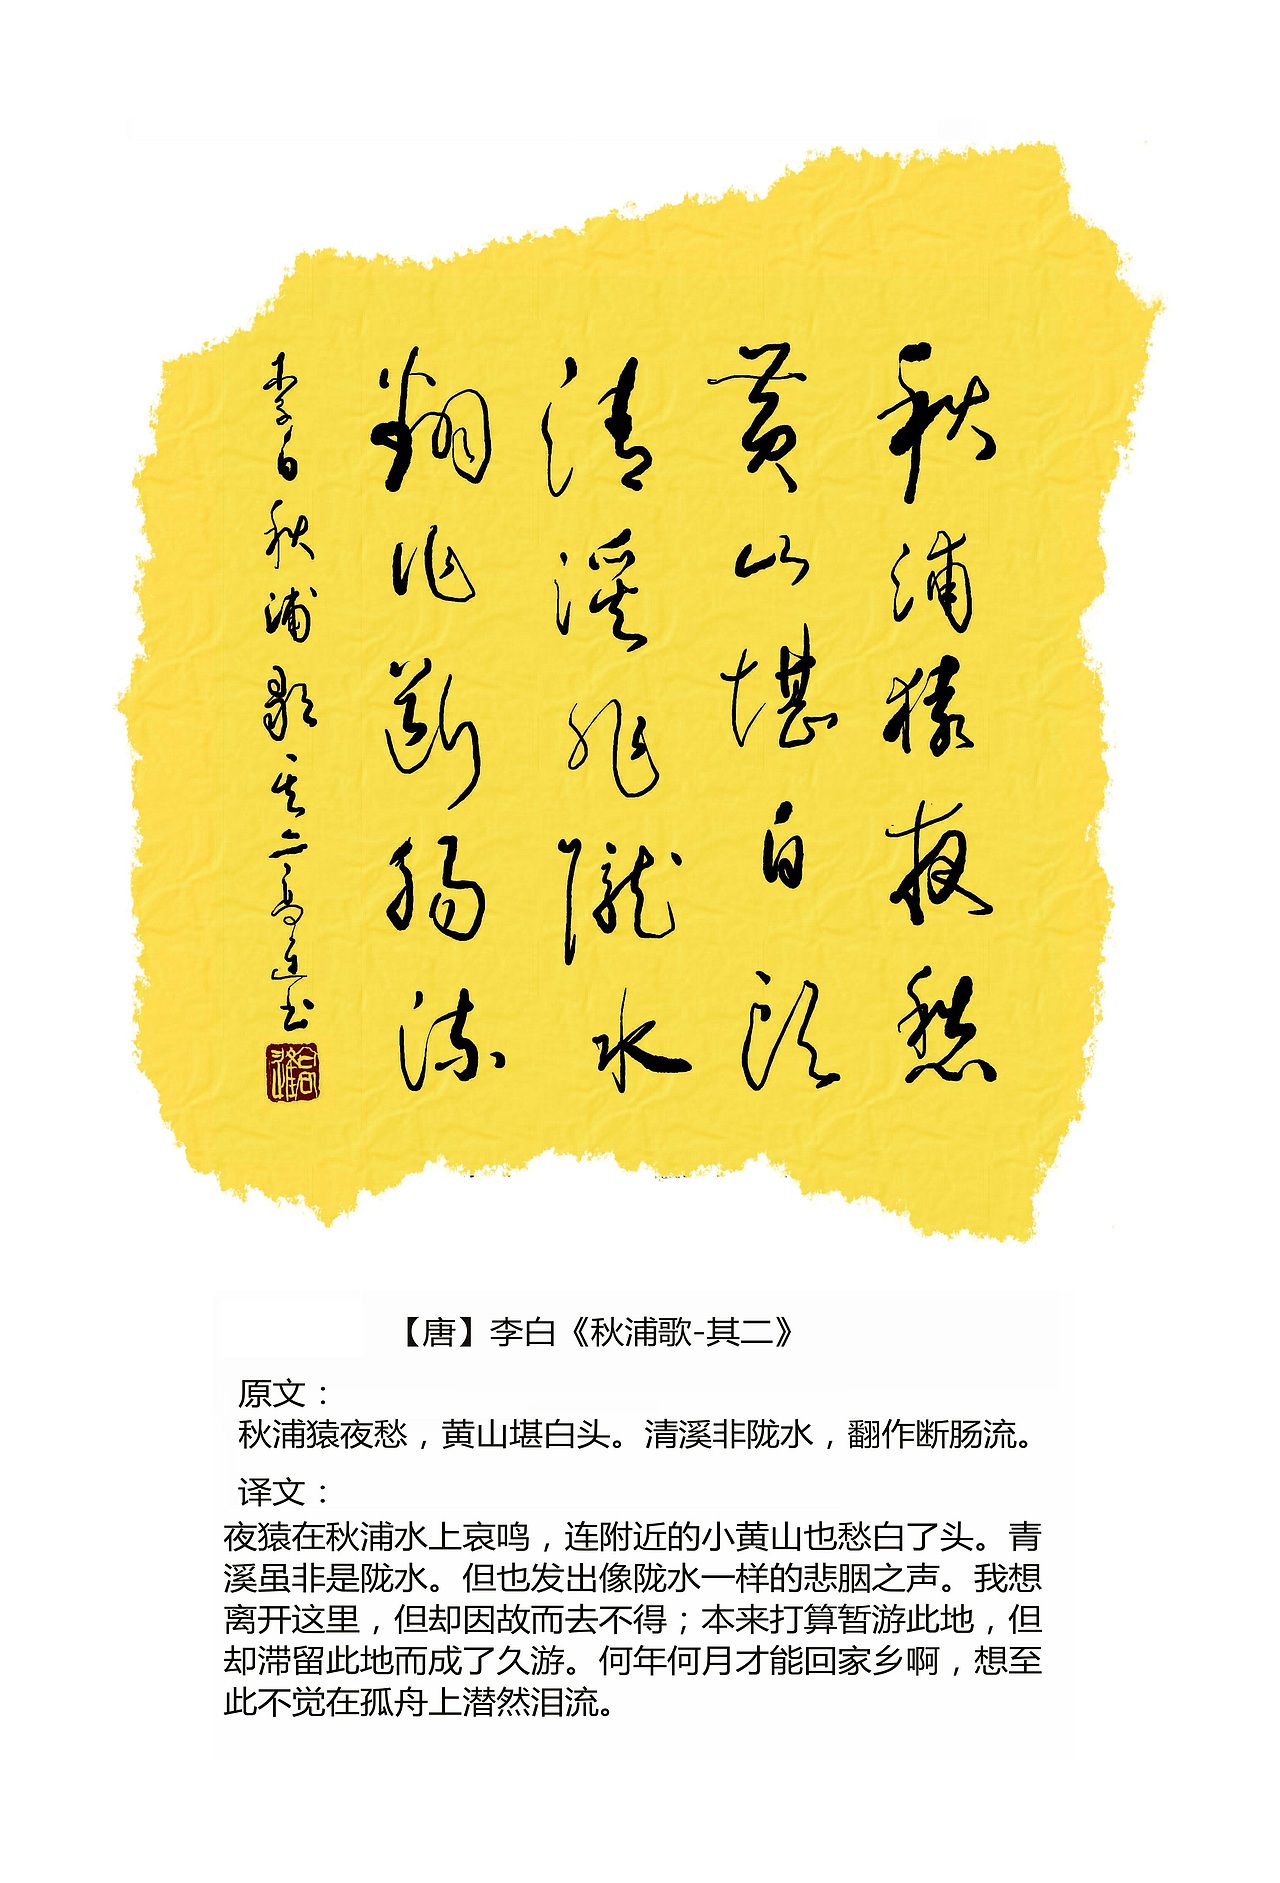 秋浦猿夜愁
黄山堪白头
清溪非陇水
翻作断肠流
李白秋浦歌其二高连书
【唐】李白《秋浦歌-其二》
原文：
秋浦猿夜愁，黄山堪白头。清溪非陇水，翻作断肠流。
译文：
夜猿在秋浦水上哀鸣，连附近的小黄山也愁白了头。青
溪虽非是陇水。但也发出像陇水一样的悲胭之声。我想
离开这里，但却因故而去不得；本来打算暂游此地，但
却滞留此地而成了久游。何年何月才能回家乡啊，想至
此不觉在孤舟上潜然泪流。